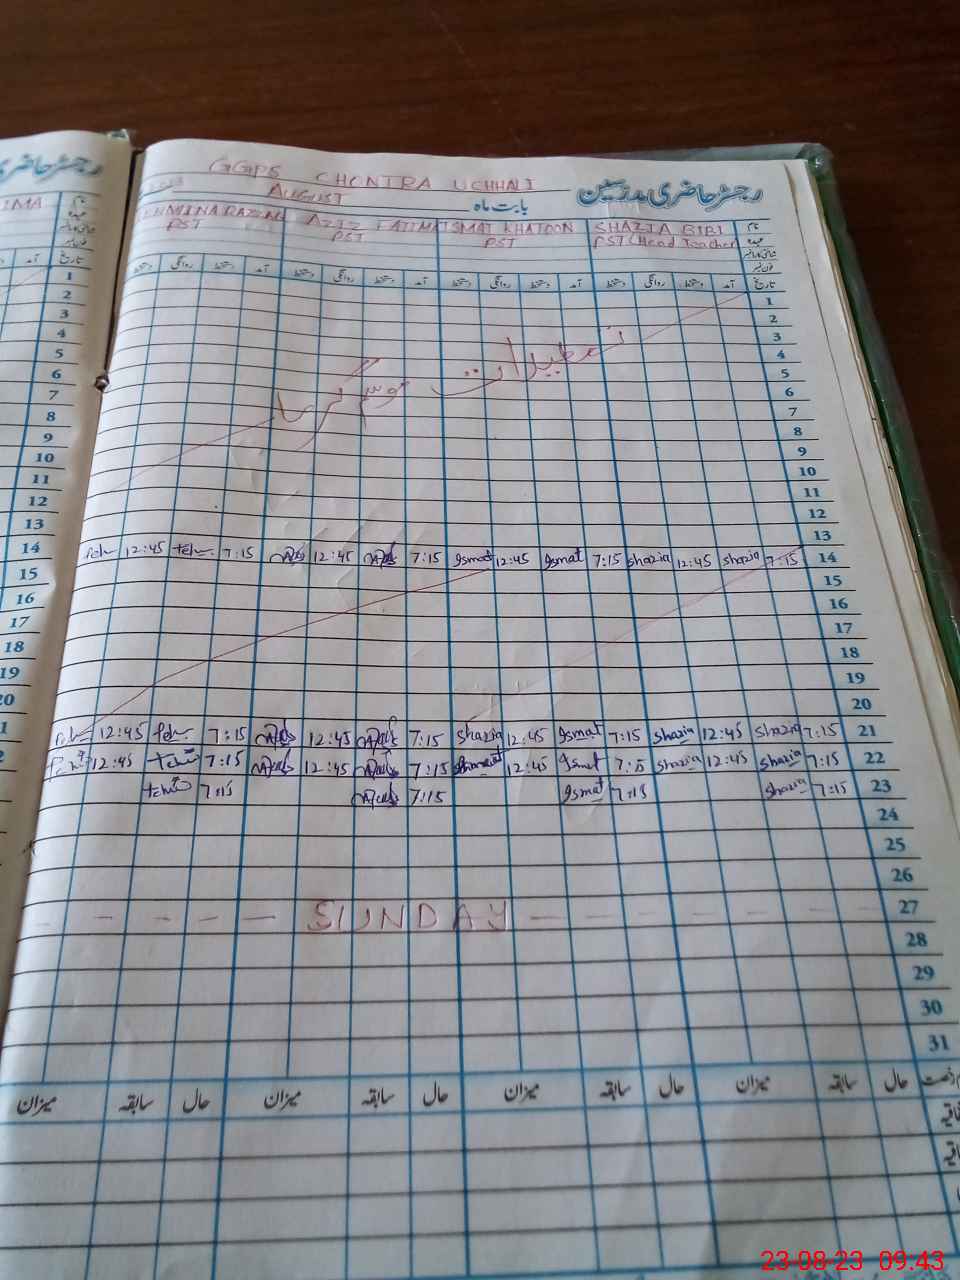 رجسٹر حاضری مدرسین
GGPS CHONTRA UCHHALI
بابت ماہ AUGUST
نام SHAZIA BIBI ISMAT KHATOON AZIZ FATIMA
عہدہ PST (Head Teacher) PST PST PST
فون نمبر
تاریخ آمد دستخط روانگی دستخط آمد دستخط روانگی دستخط آمد دستخط روانگی دستخط آمد دستخط روانگی دستخط
1
2
3
تعطیلات موسم گرما
4
5
6
7
8
9
10
11
12
13
14 7:15 shazia 12:45 shazia 7:15 Ismat 12:45 Ismat 7:15 12:45 7:15 12:45
15
16
17
18
19
20
21 7:15 shazia 12:45 shazia 7:15 Ismat 12:45 shazia 7:15 12:45 7:15 12:45
22 7:15 shazia 12:45 shazia 7:15 Ismat 12:45 7:15 12:45 7:15 12:45
23 7:15 shazia 7:15 Ismat 7:15 7:15
24
25
26
27 SUNDAY
28
29
30
31
حال سابقہ میزان حال سابقہ میزان حال سابقہ میزان حال سابقہ میزان
رجسٹر حاضری
نام
عہدہ
فون نمبر
تاریخ آمد
1
2
3
4
5
6
7
8
9
10
11
12
13
14
15
16
17
18
19
20
23-08-23 09.43